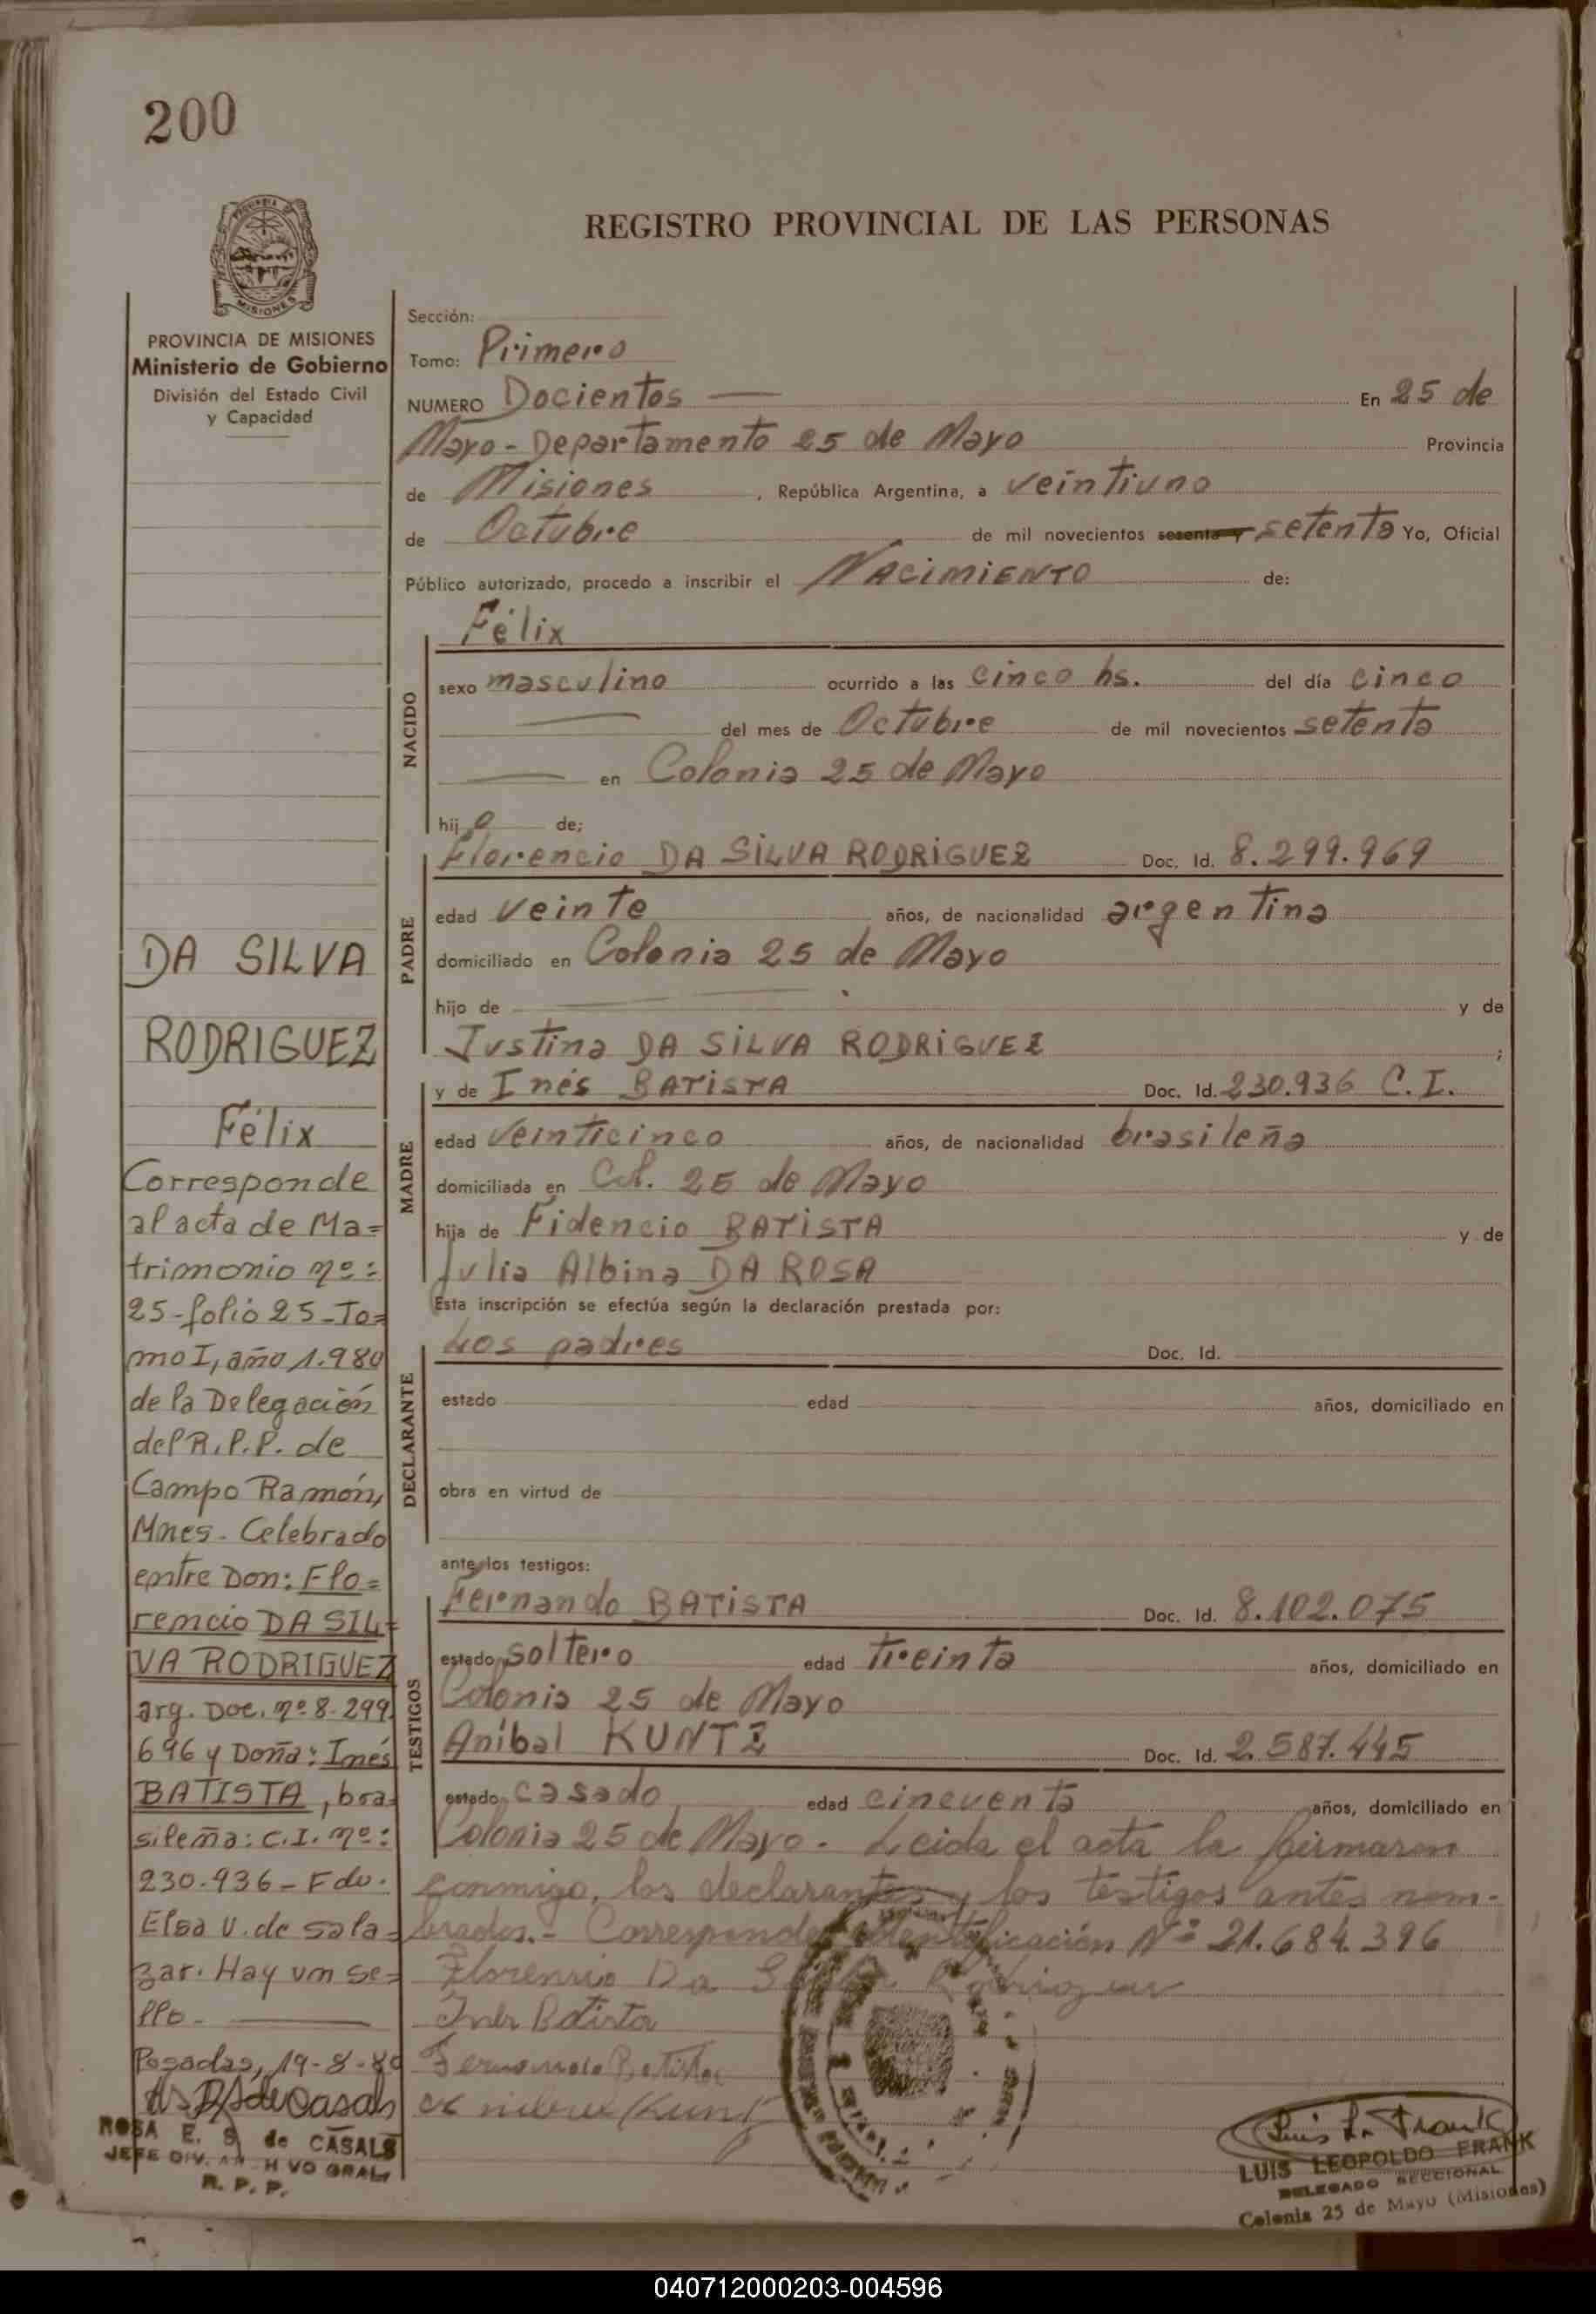 200
PROVINCIA DE MISIONES
Ministerio de Gobierno
División del Estado Civil
y Capacidad
REGISTRO PROVINCIAL DE LAS PERSONAS
Sección:
Tomo: Primero
NUMERO Docientos — En 25 de
Mayo - Departamento 25 de Mayo Provincia
de Misiones, República Argentina, a veintiuno
de Octubre de mil novecientos sesenta y setenta Yo, Oficial
Público autorizado, procedo a inscribir el NACIMIENTO de:
NACIDO
Félix
sexo masculino ocurrido a las cinco hs. del día cinco
— del mes de Octubre de mil novecientos setenta
— en Colonia 25 de Mayo
hijo de;
PADRE
Florencio DA SILVA RODRIGUEZ Doc. Id. 8.299.969
edad veinte años, de nacionalidad argentina
domiciliado en Colonia 25 de Mayo
hijo de — y de
Justina DA SILVA RODRIGUEZ ;
MADRE
y de Inés BATISTA Doc. Id. 230.936 C.I.
edad veinticinco años, de nacionalidad brasileña
domiciliada en Col. 25 de Mayo
hija de Fidencio BATISTA y de
Julia Albina DA ROSA
Esta inscripción se efectúa según la declaración prestada por:
DECLARANTE
Los padres Doc. Id.
estado edad años, domiciliado en
obra en virtud de
ante los testigos:
TESTIGOS
Fernando BATISTA Doc. Id. 8.102.075
estado soltero edad treinta años, domiciliado en
Colonia 25 de Mayo
Aníbal KUNTZ Doc. Id. 2.587.445
estado casado edad cincuenta años, domiciliado en
Colonia 25 de Mayo. - Leida el acta la firmaron
conmigo, los declarantes y los testigos antes nom-
brados.- Corresponde identificación Nº 21.684.396
Florencio Da Silva Rodriguez
Ines Batista
Fernando Batista
Kuntz
Luis L. Frank
LUIS LEOPOLDO FRANK
DELEGADO SECCIONAL
Colonia 25 de Mayo (Misiones)
DA SILVA
RODRIGUEZ
Félix
Corresponde
al acta de Ma=
trimonio nº:
25-folio 25-To=
mo I, año 1.980
de la Delegación
del R.P.P. de
Campo Ramón,
Mnes. Celebrado
entre Don: Flo=
rencio DA SIL=
VA RODRIGUEZ
arg. Doc. nº 8.299.
696 y Doña: Inés
BATISTA, bra=
sileña: C.I. nº:
230.936 - Fdo.
Elsa V. de Sala=
zar. Hay un se=
llo. —
Posadas, 19-8-80
ROSA E. S. de CASALS
JEFE DIV. ARCHIVO GRAL.
R. P. P.
040712000203-004596